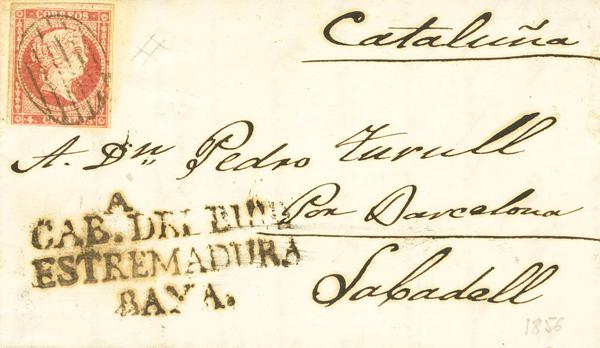 CORREOS
4. CUARTOS
Cataluña
A. Dn Pedro Turull
Por Barcelona
Sabadell
A
CAB. DEL
ESTREMADURA
BAXA.
1856